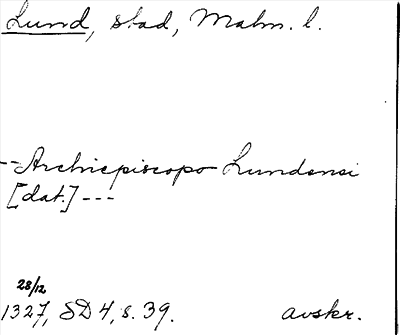 Lund, stad, Malm. l.
--Archiepiscopo Lundensi
[dat.] ---
28/12
1327, SD 4, s. 39. avskr.